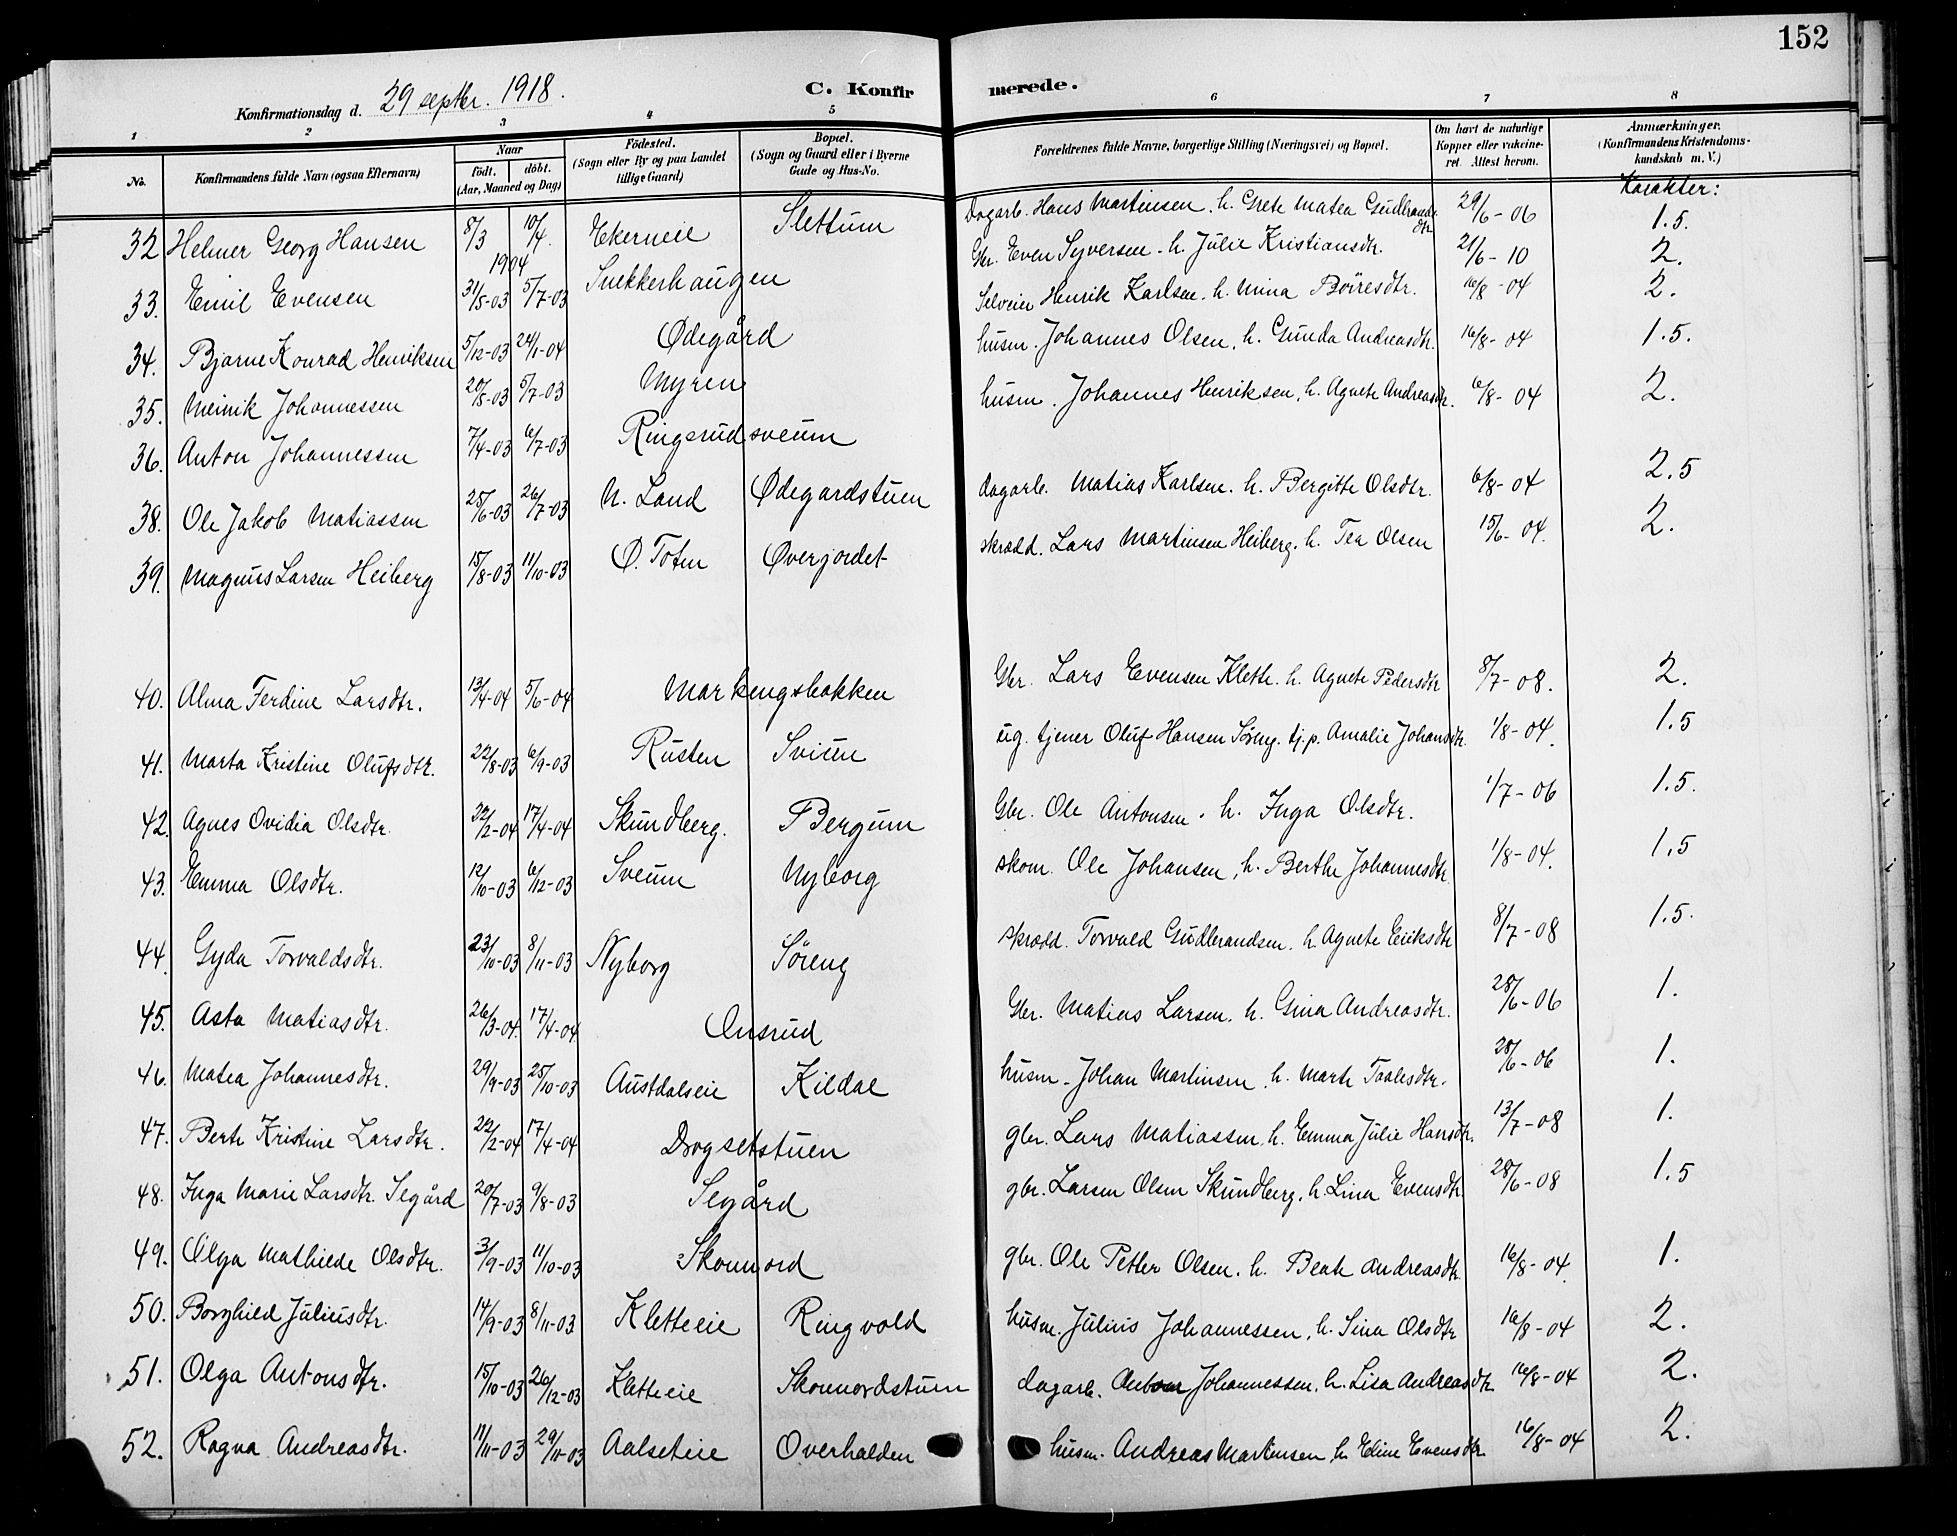 152
Konfirmationsdag d. 29 septbr. 1918.
C. Konfirmerede.
1 2 3 4 5 6 7 8
No.
Konfirmandens fulde Navn (ogsaa Efternavn)
Naar
født. døbt.
(Aar, Maaned og Dag)
Fødested.
(Sogn eller By og paa Landet
tillige Gaard)
Bopæl.
(Sogn og Gaard eller i Byerne
Gade og Hus-No.
Forældrenes fulde Navne, borgerlige Stilling (Næringsvei) og Bopæl.
Om havt de naturlige
Kopper eller vakcine-
ret. Attest herom.
Anmærkninger.
(Konfirmandens Kristendoms-
kundskab m. V.)
Karakter:
32 Helmer Georg Hansen 8/3 10/4. 1904 Ekerneie Slettum Dagarb. Hans Martinsen. h. Grete Matea Gudbrandsdtr 29/6-06 1.5.
33. Emil Evensen 31/5-03 5/7-03 Snekkerhaugen Gbr. Even Syversen. h. Julie Kristiansdtr. 21/6-10 2.
34. Bjarne Konrad Henriksen 5/12-03 24/1-04 Ødegård Selveier Henrik Karlsen. h. Mina Böiresdtr. 16/8-04 2.
35. Meinik Johannessen 20/5-03 5/7-03 Myren husm. Johannes Olsen, h. Gunda Andreasdtr. 16/8-04 1.5.
36. Anton Johannessen 7/4-03 6/7-03 Ringsrudsveum husm. Johannes Henriksen, h. Agnete Andreasdtr. 6/8-04 2.
38. Ole Jakob Matiassen 25/6-03 26/7-03 N. Land Ødegardstuen dagarb. Matias Karlsen. h. Bergitte Olsdtr. 6/8-04 2.5
39. Magnus Larsen Heiberg 15/8-03 11/10-03 Ø. Toten Øverjordet skrædd. Lars Martinsen Heiberg. h. Tea Olsen 15/6-04. 2.
40. Alma Ferdine Larsdtr. 13/4-04 5/6-04 Markengsbakken Gbr. Lars Evensen Klette. h. Agnete Pedersdtr 8/7-08. 2.
41. Marta Kristine Olufsdtr. 22/8-03 6/9-03 Rusten Sviuen ug. tjener Oluf Hansen Söreng. tj.p. Amalie Johansdtr. 1/8-04. 1.5
42. Agnes Ovidia Olsdtr. 22/2-04 17/4-04 Skundberg. Bergum Gbr. Ole Antonsen. h. Inga Olsdtr. 1/7-06 1.5.
43. Emma Olsdtr. 12/10-03 6/12-03 Sveum Nyborg skom. Ole Johansen, h. Berthe Johannesdtr. 1/8-04. 1.5
44. Gyda Torvaldsdtr. 23/10-03 8/11-03 Nyborg Söreng skrædd. Torvald Gudbrandsen. h. Agnete Eriksdtr 8/7-08 1.5.
45. Asta Matiasdtr. 26/3-04. 17/4-04 Onsrud Gbr. Matias Larsen. h. Gina Andreasdtr. 28/6-06 1.
46. Matea Johannesdtr. 29/9-03 25/10-03 Austdalseie Kildal husm. Johan Martinsen. h. Marte Taalesdtr. 28/6-06 1.
47. Berte Kristine Larsdtr. 22/2-04 17/4-04 Drogsetstuen gbr. Lars Matiassen. h. Emma Julie Hansdtr. 13/7-08 1.
48. Inga Marie Larsdtr. Segård 20/7-03 9/8-03 Segård gbr. Larsen Olsen Skundberg. h. Lina Evensdtr. 28/6-08 1.5
49. Olga Mathilde Olsdtr. 3/9-03 11/10-03 Skonnord gbr. Ole Petter Olsen. h. Beate Andreasdtr. 16/8-04. 1.
50. Borghild Juliusdtr. 14/9-03 8/11-03 Kletteeie Ringvold husm. Julius Johannessen, h. Sina Olsdtr 16/8-04 2.
51. Olga Antonsdtr. 15/10-03 26/12-03 Kletteeie Skonnordstuen dagarb. Anton Johannessen, h. Lisa Andreasdtr. 16/8-04 2.
52. Ragna Andreasdtr. 11/11-03 29/11-03 Aalseteie Overhalden husm. Andreas Martinsen, h. Eline Evensdtr. 16/8-04 2.